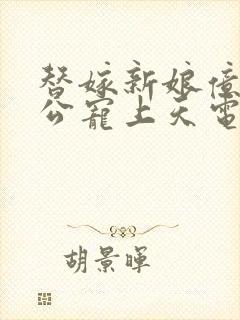 替嫁新娘億
公寵上天電
胡景暉